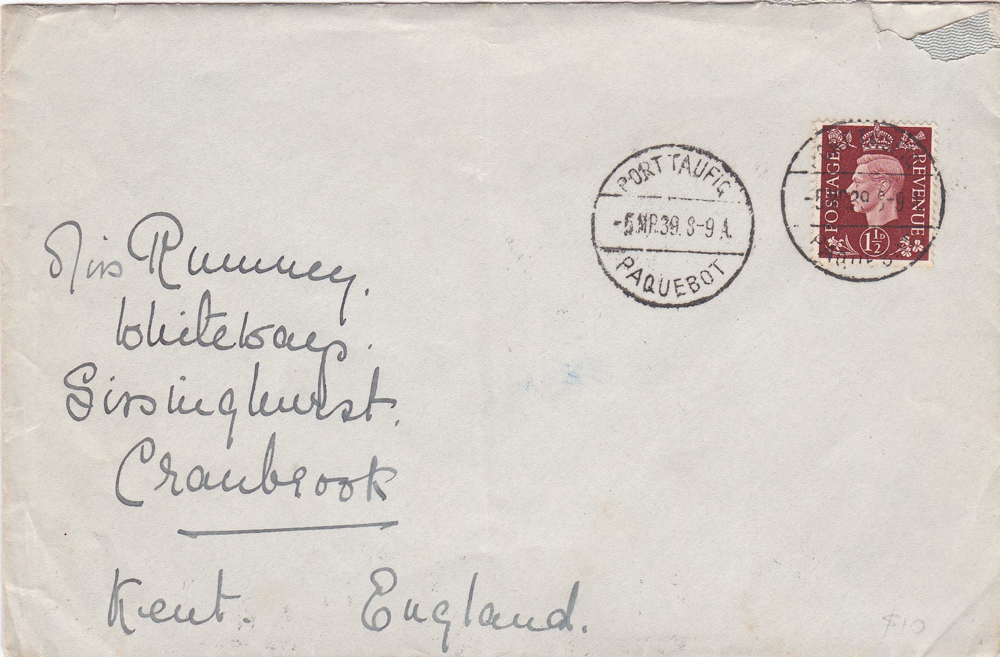 PORT TAUFIG
-5 MR.39. 8-9 A.
PAQUEBOT
POSTAGE
REVENUE
1½D
-5 MR 39 8-9
Miss Rumney.
Whiteways.
Sissinghurst.
Cranbrook
Kent. England.
$10